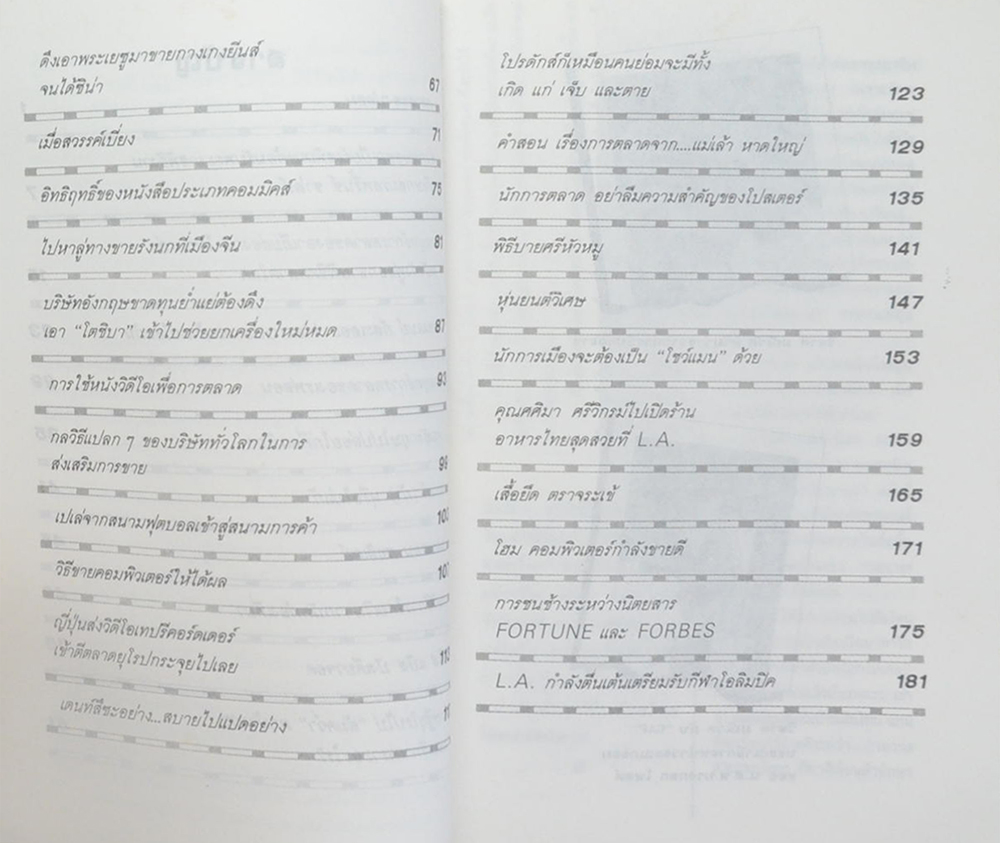 ดึงเอาพระเยซูมาขายกางเกงยีนส์
จนได้ซีน่า 67
เมื่อสวรรค์เบี่ยง 71
อิทธิฤทธิ์ของหนังสือประเภทคอมมิคส์ 75
ไปหาลู่ทางขายรังนกที่เมืองจีน 81
บริษัทอังกฤษขาดทุนย่ำแย่ต้องดึง
เอา “โตชิบา” เข้าไปช่วยยกเครื่องใหม่หมด 87
การใช้หนังวิดีโอเพื่อการตลาด 93
กลวิธีแปลก ๆ ของบริษัททั่วโลกในการ
ส่งเสริมการขาย 99
เปเล่จากสนามฟุตบอลเข้าสู่สนามการค้า
วิธีขายคอมพิวเตอร์ให้ได้ผล
ญี่ปุ่นส่งวิดีโอเทปรีคอร์ดเดอร์
เข้าตีตลาดยุโรปกระจุยไปเลย 113
เดนท์สึซะอย่าง...สบายไปแปดอย่าง
โปรดักส์ก็เหมือนคนย่อมจะมีทั้ง
เกิด แก่ เจ็บ และตาย 123
คำสอน เรื่องการตลาดจาก....แม่เล้า หาดใหญ่ 129
นักการตลาด อย่าลืมความสำคัญของโปสเตอร์ 135
พิธีบายศรีหัวหมู 141
หุ่นยนต์วิเศษ 147
นักการเมืองจะต้องเป็น “โชว์แมน” ด้วย 153
คุณศศิมา ศรีวิกรม์ไปเปิดร้าน
อาหารไทยสุดสวยที่ L.A. 159
เสื้อยืด ตราจระเข้ 165
โฮม คอมพิวเตอร์กำลังขายดี 171
การชนช้างระหว่างนิตยสาร
FORTUNE และ FORBES 175
L.A. กำลังตื่นเต้นเตรียมรับกีฬาโอลิมปิค 181